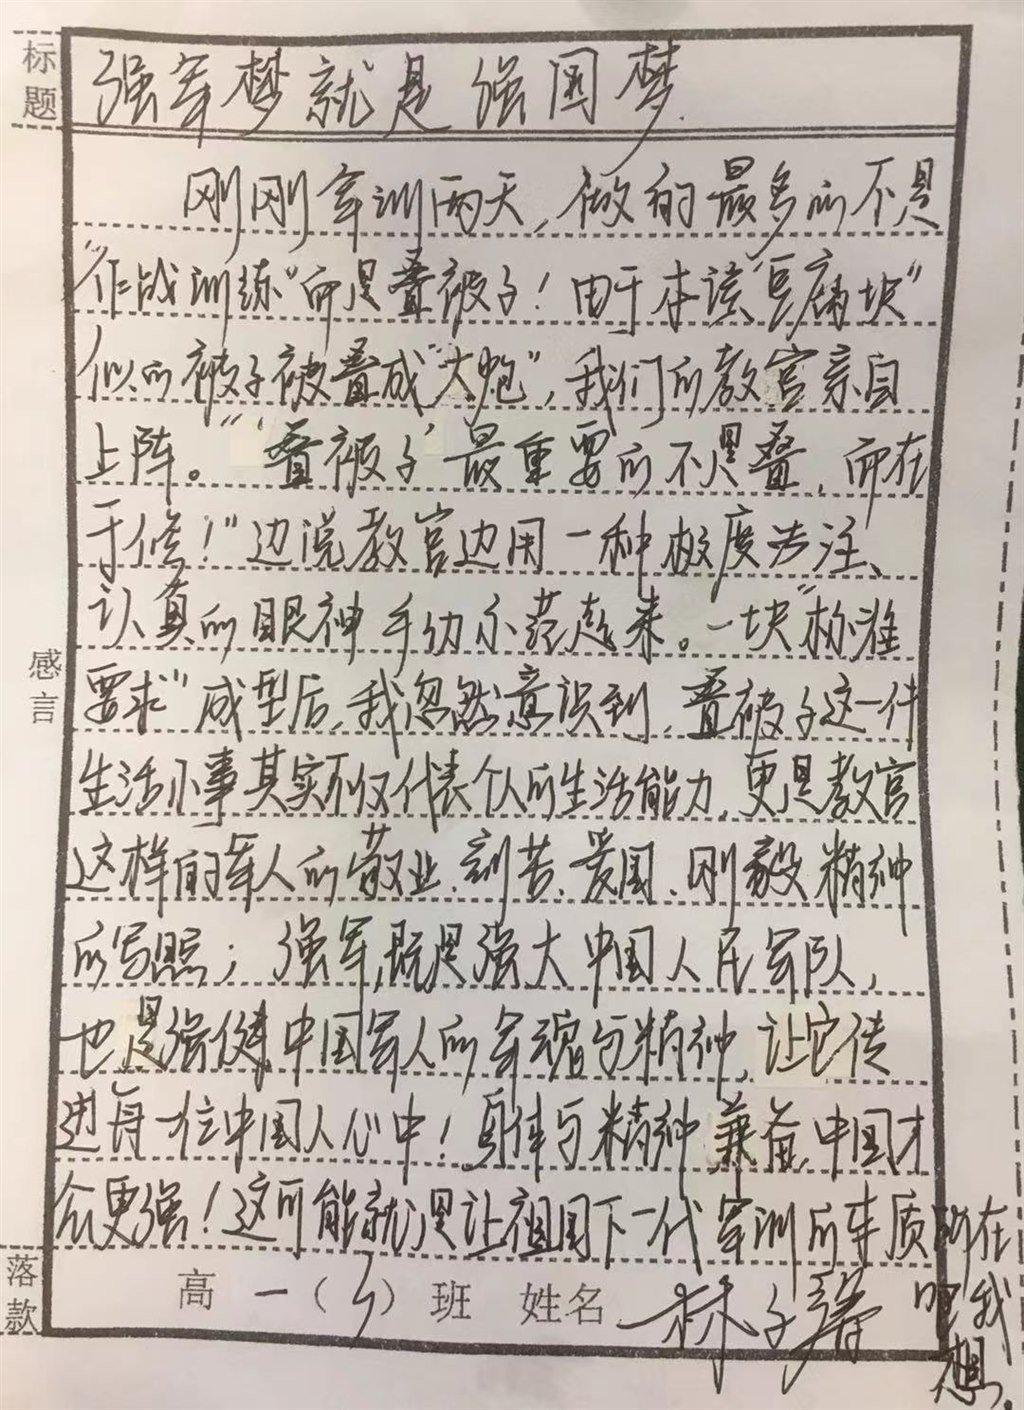 标题
强军梦就是强国梦.
刚刚军训两天,做的最多的不是
"作战训练"而是叠被子!由于本该"豆腐块"
似的被子被叠成"大炮",我们的教官亲自
上阵。"'叠被子'最重要的不是叠,而在
于修!"边说教官边用一种极度专注、
认真的眼神手动示范起来。一块"标准
要求"成型后,我忽然意识到,叠被子这一件
生活小事其实不仅代表个人的生活能力,更是教官
这样的军人的敬业、刻苦、爱国、刚毅精神
的写照;强军,既是强大中国人民军队,
也是强健中国军人的军魂与精神,让它传
进每一位中国人心中!身体与精神兼备,中国才
会更强!这可能就是让祖国下一代军训的本质所在
吧我
想。
感言
落款
高一()班 姓名 林子